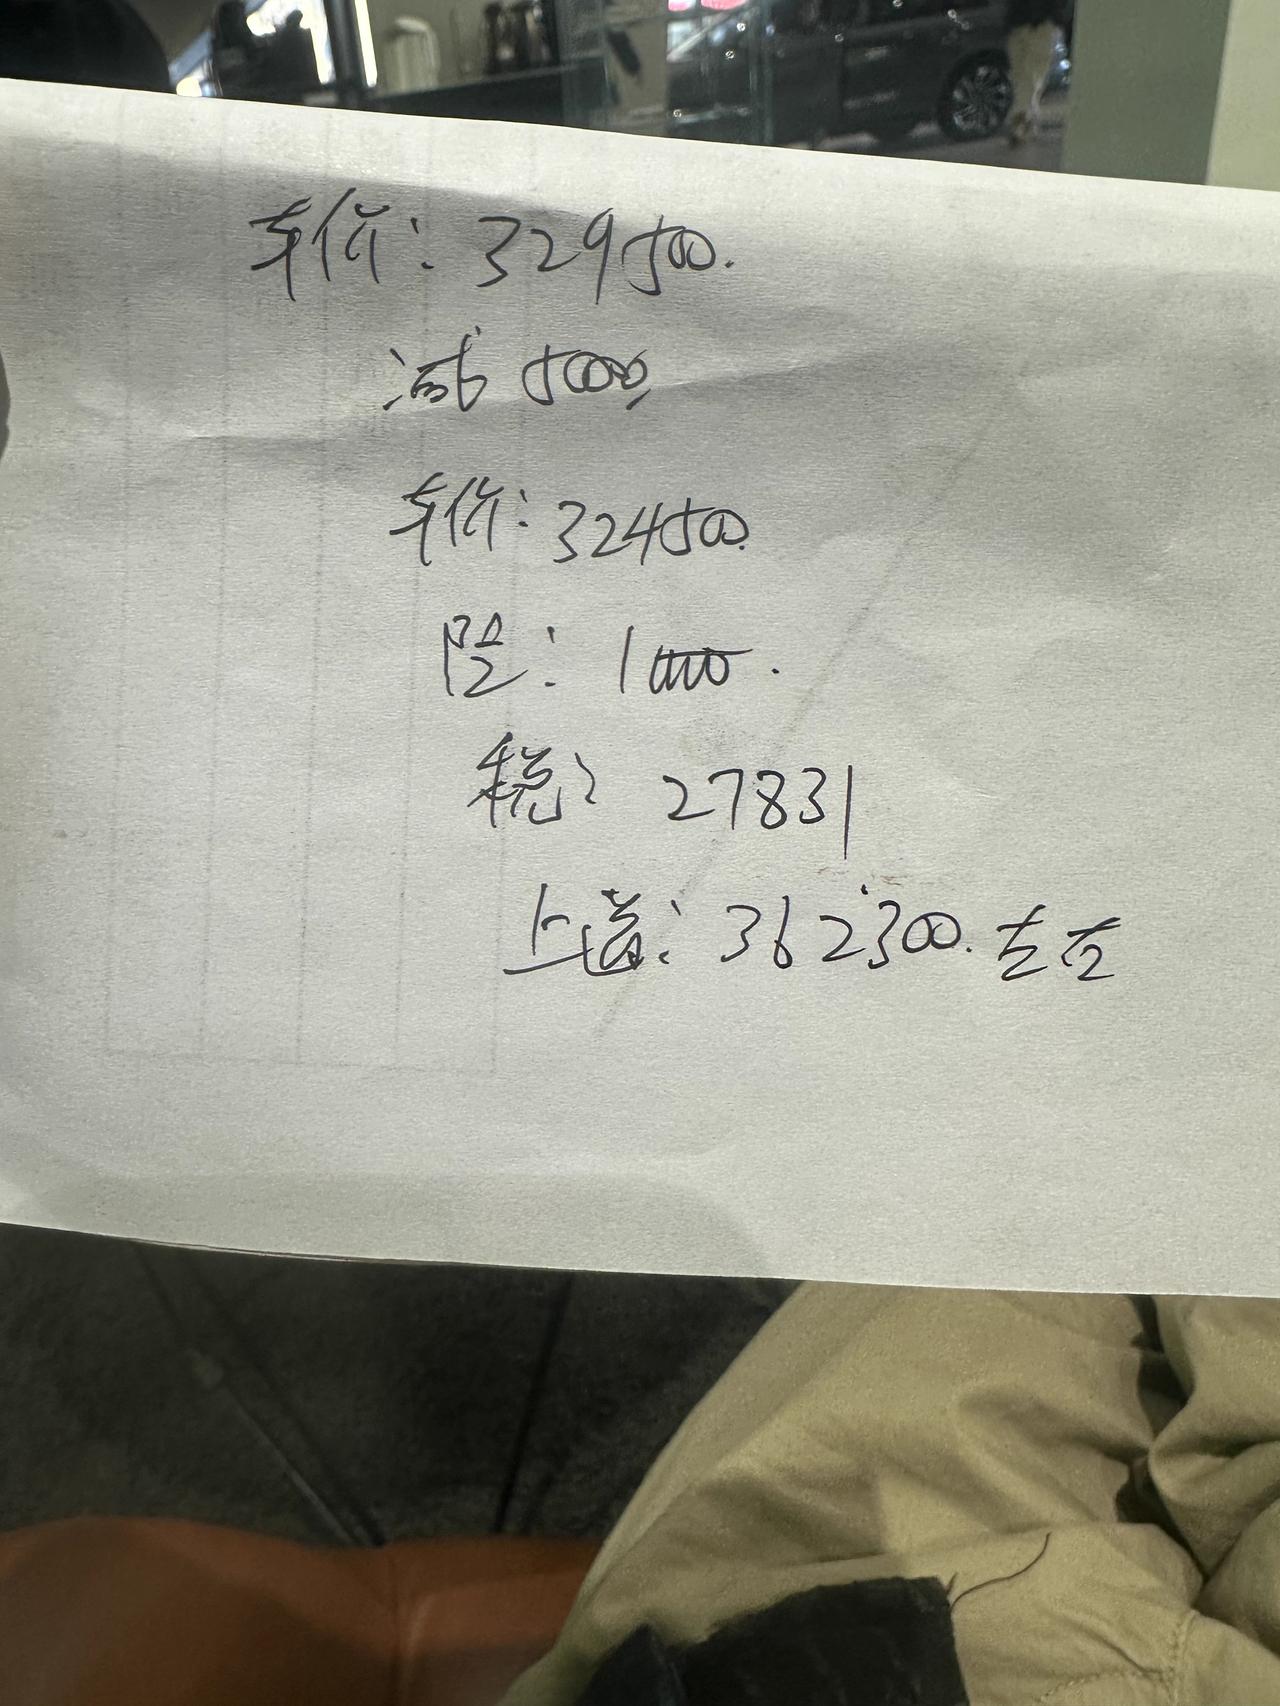 车价：329500.
减5000
车价：324500.
险：10000.
税：27831
上道：362300.左右